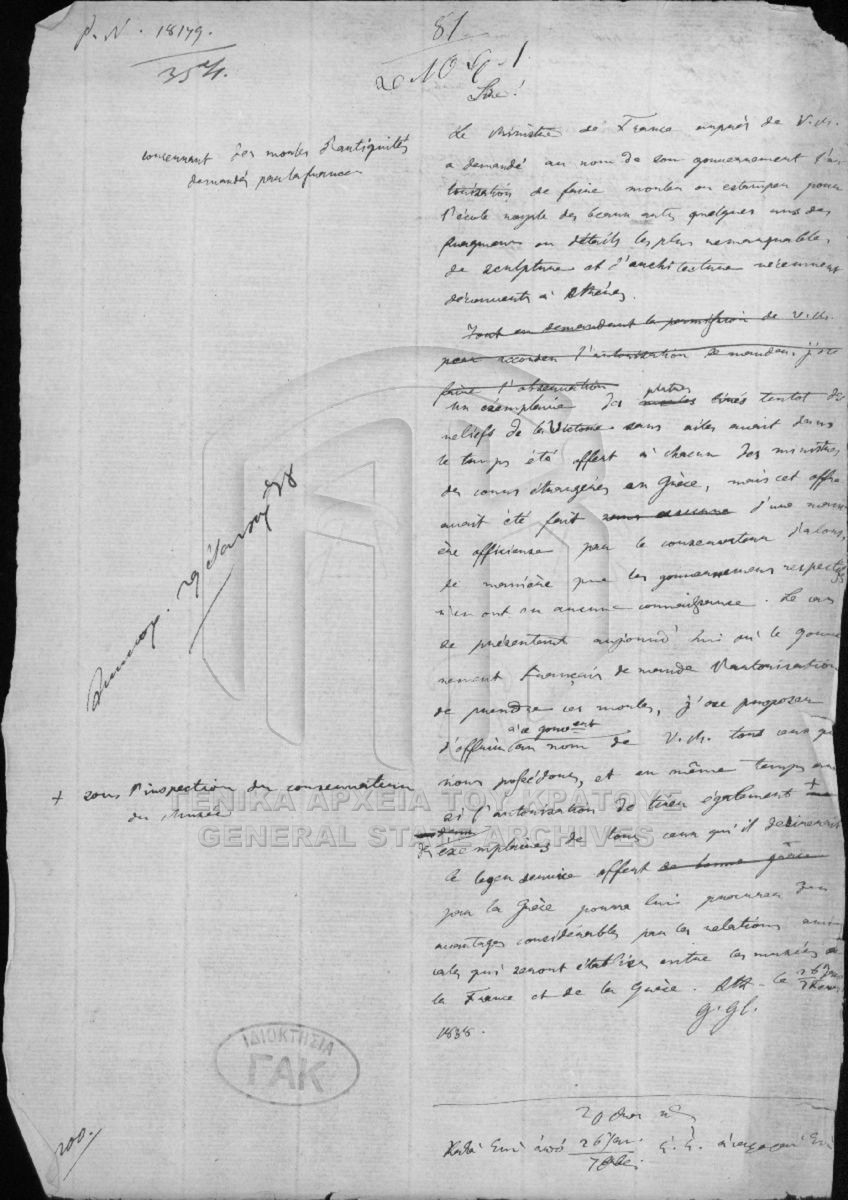 p. N. 18179.
81
Sire!
concernant des moules d'antiquités
demandés par la france
Le Ministre de France auprès de V. M.
a demandé au nom de son gouvernement l'au
torisation de faire mouler ou estamper pour
l'école royale des beaux arts quelques uns des
fragmens ou détails les plus remarquables
de sculpture et d'architecture récemment
découverts à Athènes.
Tout en demandant la permission de V. M.
pour accorder l'autorisation demandée, j'ose
faire l'observation
Un exemplaire des plâtres tirés tantot des
reliefs de la Victoire sans ailes avait dans
le temps été offert à chacun des ministres
des cours étrangères en Grèce, mais cet offre
avait été fait sans aucune d'une mani
ère officieuse par le conservateur d'alors,
de manière que les gouvernemens respectifs
n'en ont eu aucune connaissance. Le cas
se présentant aujourd'hui où le gouver
nement Français demande l'autorisation
de prendre ces moules, j'ose proposer
d'offrir à ce gouvent au nom de V. M. tous ceux que
nous possédons, et en même temps
l'autorisation de tirer également +
des exemplaires de tous ceux qu'il désirerait
+ sous l'inspection du conservateur
du Musée
Ce léger service offert de bonne grâce
par la Grèce pourra lui procurer des
avantages considérables par les relations ami
cales qui seront établies entre les musées de
la France et de la Grèce. Ath. le 26
1838.
G. Gl.
ΓΕΝΙΚΑ ΑΡΧΕΙΑ ΤΟΥ ΚΡΑΤΟΥΣ
GENERAL STATE ARCHIVES
ΙΔΙΟΚΤΗΣΙΑ
ΓΑΚ
200.